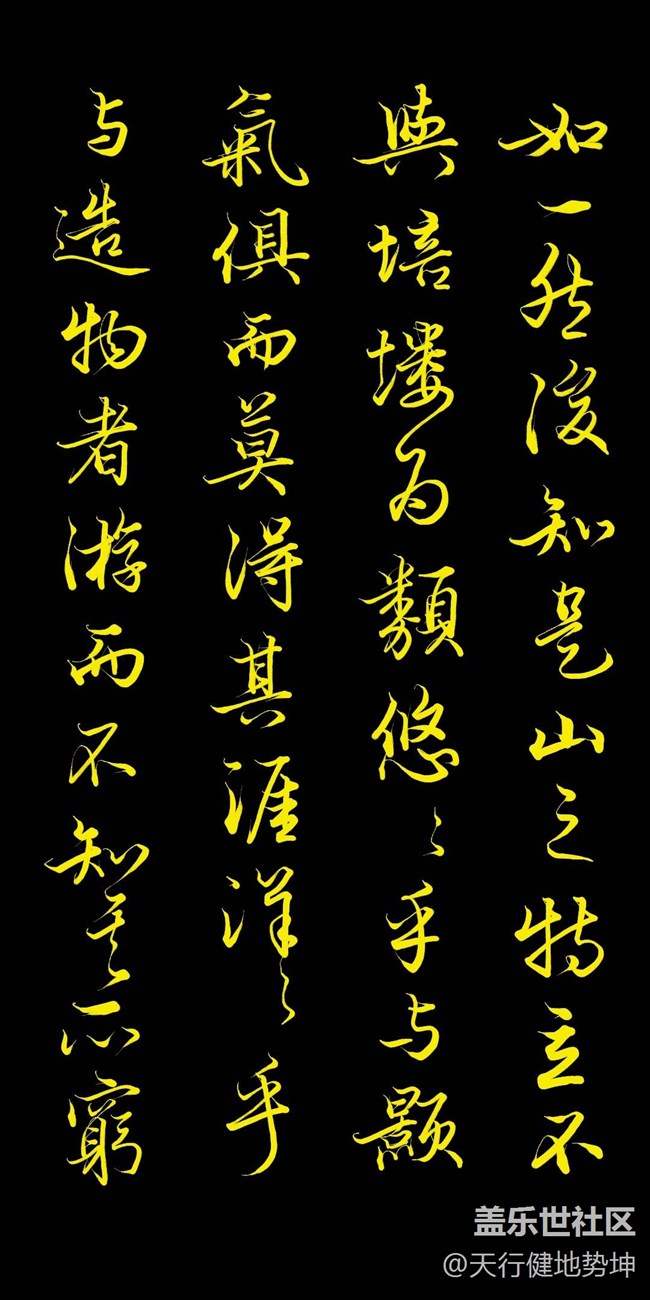 如一然後知是山之特立不
與培塿为類悠々乎与颢
氣俱而莫得其涯洋々乎
与造物者游而不知其所窮
盖乐世社区
@天行健地势坤